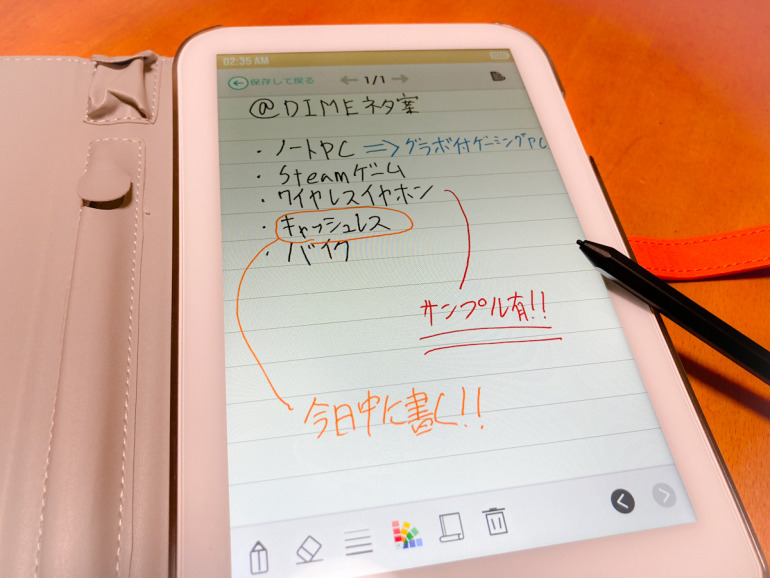 02:35 AM
保存して戻る 1/1
@DIMEネタ案
・ノートPC ⇒グラボ付ゲーミングPC
・Steamゲーム
・ワイヤレスイヤホン
・キャッシュレス
・バイク
サンプル有!!
今日中に書く!!